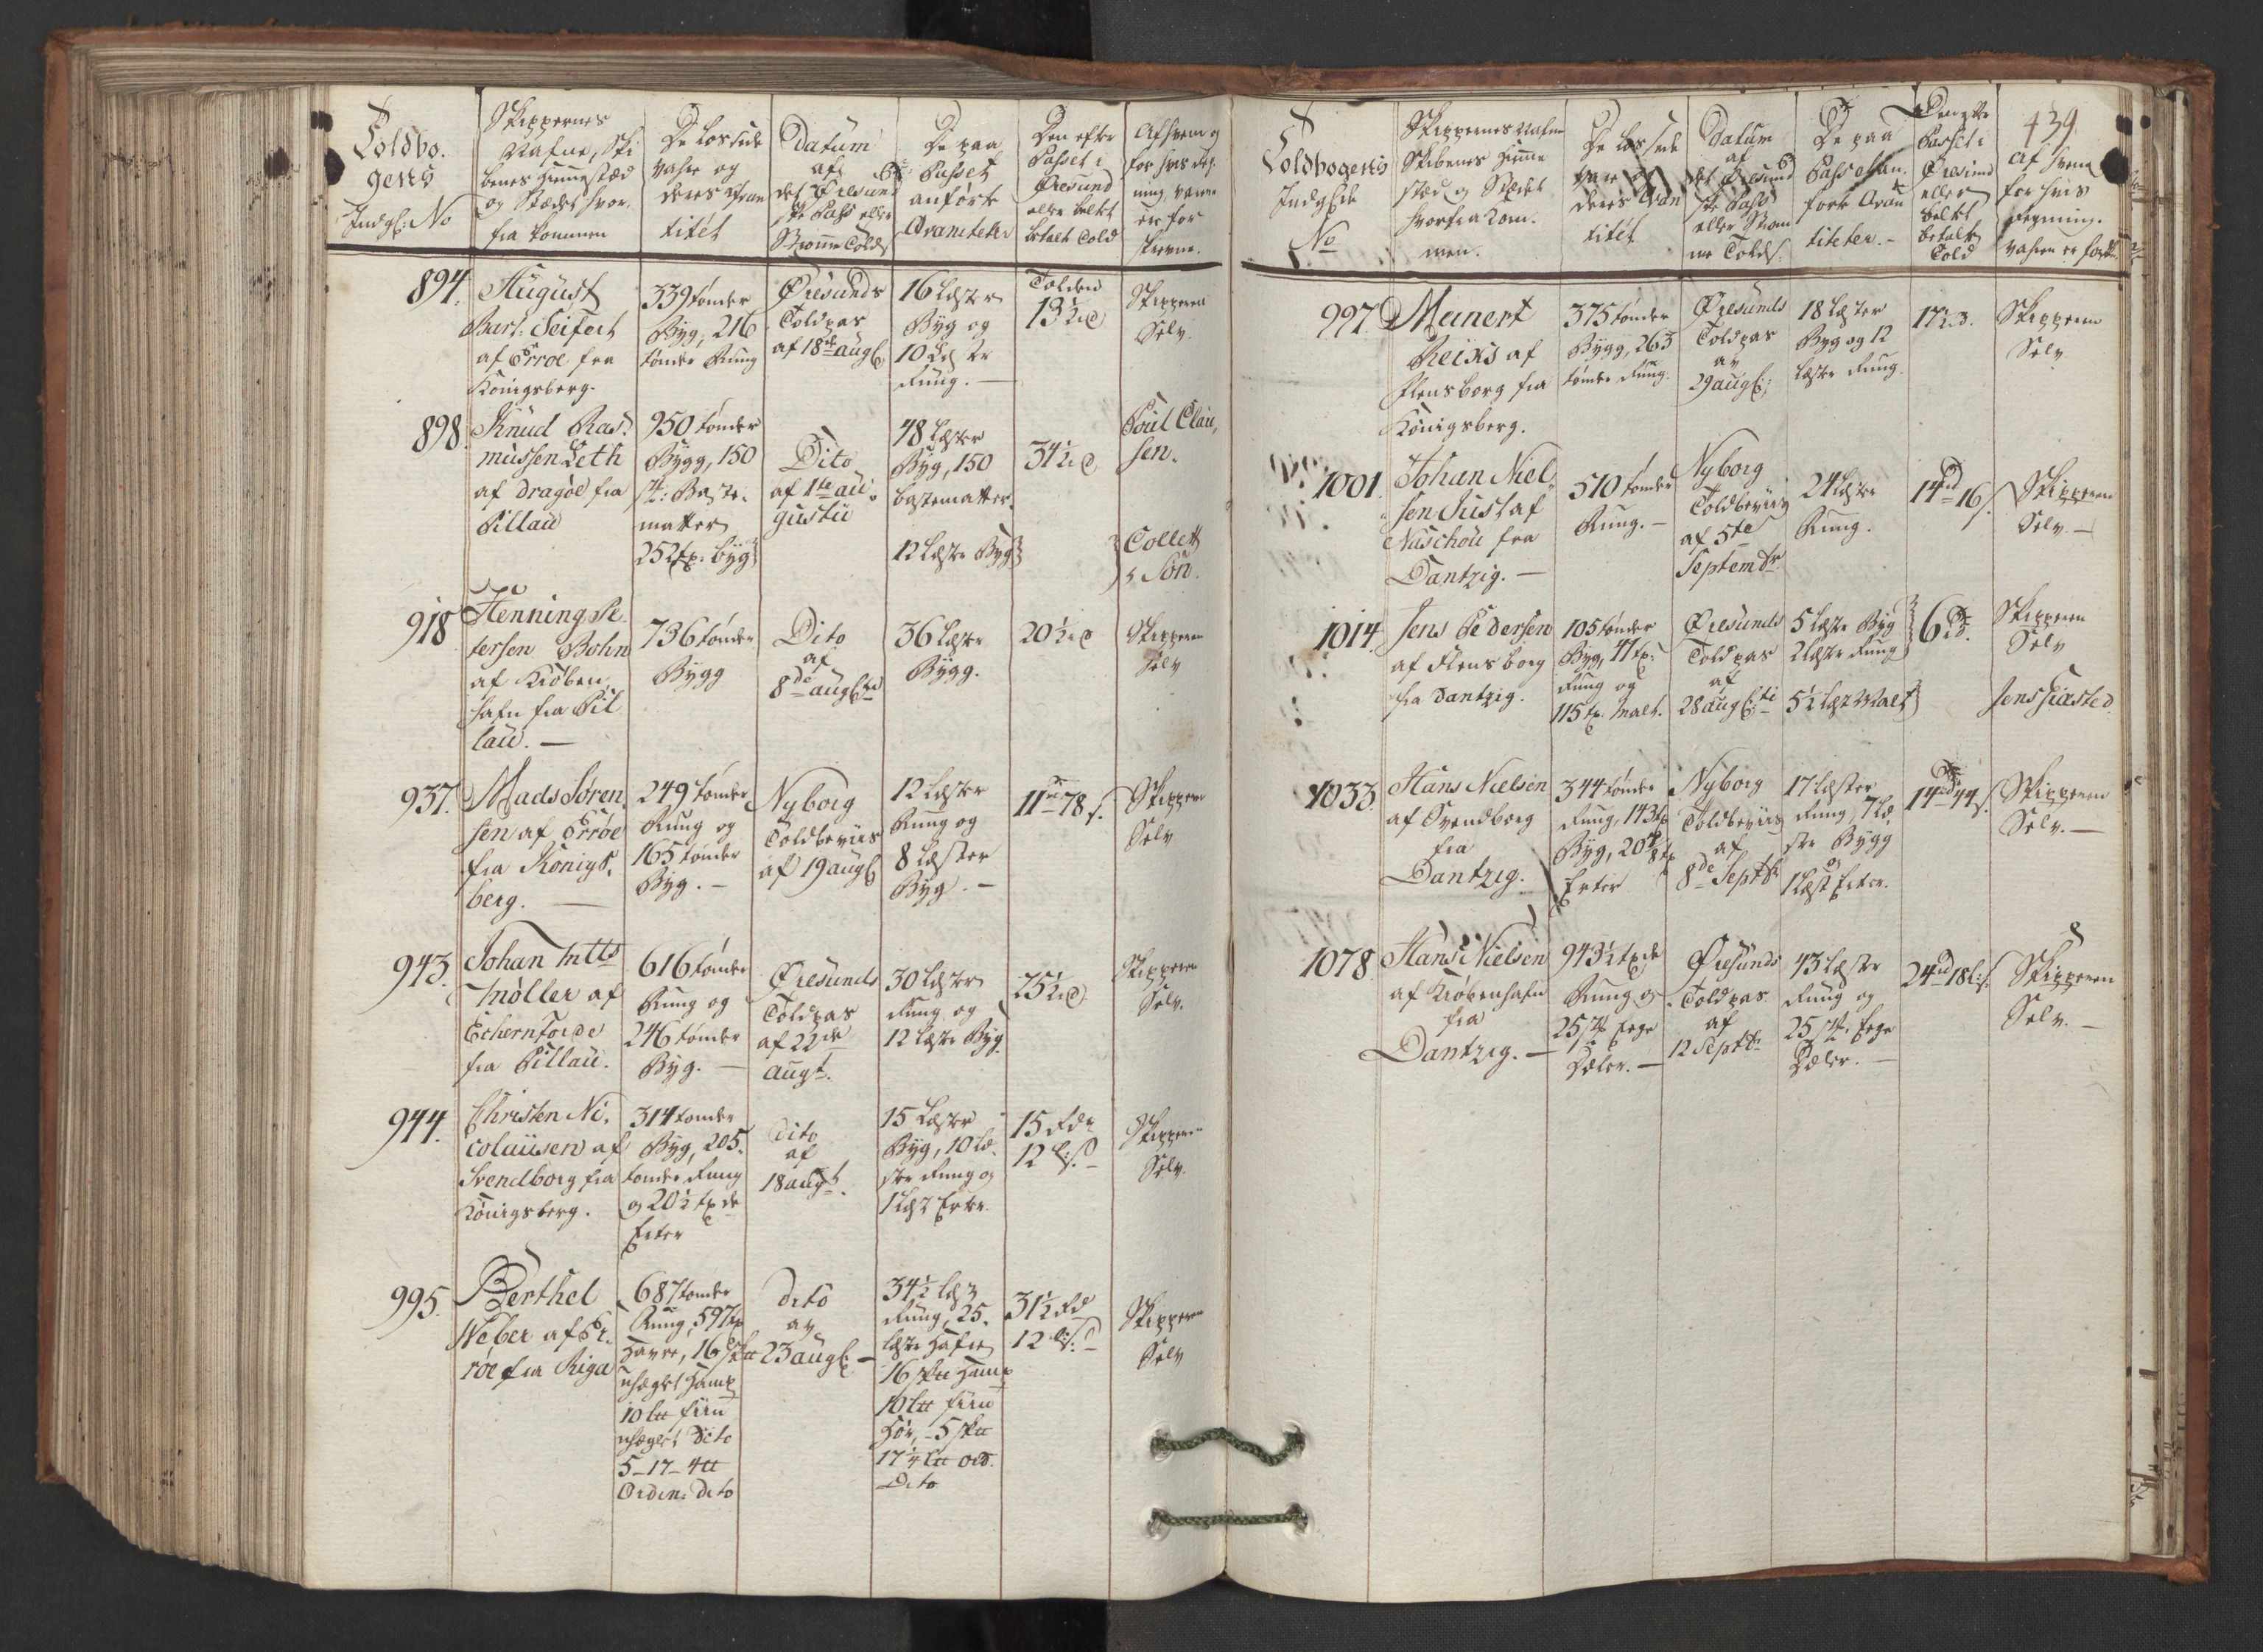 Toldbo-
gens
Indg: No
Skippernes
Nafne, Ski
benes Hiemstæd
og Stædet hvor-
fra kommen
De lossede
Vahre og
deres Qvan
titét
Datum
af
det Øresund
ske Pass eller
Strømme Told
De paa
Passet
anførte
Qvantitéter
Den efter
Passet i
Øresund
eller Beltet
betalt Told
Af hvem og
for hvis reg-
ning, Varene
ere for
skrevne.
894.
August
Bart. Seifert
af Erroe fra
Königsberg.
339 tønder
Byg, 216
tønder Rung
Øresunds
Toldpas
af 18de augs
16 Læster
Byg og
10 Læster
Rung. —
Tolden
13½ rd
Skipperen
Selv.
898.
Knud Ras-
mussen Leth
af Dragöe fra
Pillau
950 tønder
Bygg, 150
st: Baste-
matter
252 tr: byg
Dito
af 1te au-
gustii
48 Læster
Byg, 150
bastematter.
12 Læster Byg
34½ rd
Poul Clau-
sen.
Collett
& Søn.
918
Henning Pe-
tersen Bohn
af Kiöben-
hafn fra Pil
lau. —
736 tønder
Bygg
Dito
af
8de augs
36 Læster
Bygg.
20½ rd
Skipperen
Selv
937.
Mads Sören-
sen af Erröe
fra Königs-
berg. —
249 tønder
Rung og
165 tønder
Byg. —
Nyborg
Toldbeviis
af 19 augs
12 Læster
Rung og
8 Læster
Byg. —
11 rd 78 s.
Skipperen
Selv
943.
Johan Matts
Møller af
Echernförde
fra Pillau.
616 tønder
Rung og
246 tønder
Byg. —
Øresunds
Toldpas
af 22de
augt.
30 Læster
Rung og
12 Læster Byg
25½ rd
Skipperen
Selv.
944.
Christen Ni-
colausen af
Svendborg fra
Königsberg.
314 tønder
Byg, 205
tønder Rung
og 20½ tønde
Erter
Dito
af
18 augt.
15 Læster
Byg, 10 Læ-
ster Rung og
1 Læst Erter.
15 Rdr
12 ls. —
Skipperen
Selv.
995.
Berthel
Weber af Er-
röe fra Riga
687 tønder
Rung, 597 tr
Havre, 16 sk℔
uhæglet Hamp
10 l℔ fiin
uhæglet Dito
5-17-4℔
Ordin: Dito
dito
av
23 augs: —
34½ Læst
Rung, 25
Læster Hafre
16 sk℔ Hamp
10 l℔ fiin
Hør, - 5 sk℔
17¼ l℔ ord.
Dito
31½ Rd
12 ls. —
Skipperen
Selv
439
Toldbogens
Indgde
No
Skippernes Nafne
Skibenes Hiem
stæd og Stædet
hvorfra kom-
men.
De lossede
Vare og
deres Qvan
titét
Datum
af
det Øresund
ske Pass
eller Strøm
me Tolds:
De paa
Passet an-
førte Qvan
titeter. —
Den efter
Passet i
Øresund
eller
Beltet
betalt
Told
Af hvem
for hvis
regning.
Vahren er forskr.
997.
Meinert
Reixs af
Flensborg fra
Königsberg.
375 tønder
Bygg, 263
tønder Rung.
Øresunds
Toldpas
av
29 augs:
18 Læster
Byg og 12
Læster Rung.
17½ rd.
Skipperen
Selv
1001.
Johan Niel-
sen Just af
Nuschou fra
Dantzig. —
510 tønder
Rung. —
Nyborg
Toldbeviis
af 5te
Septembr
24 Læster
Rung.
14 rd 16 s.
Skipperen
Selv. —
1014
Jens Pedersen
af Flensborg
fra Dantzig.
105 tønder
Byg, 41 tr:
Rung og
115 tr. Malt.
Øresunds
Toldpas
af
28 augsti
5 Læster Byg
2 Læster Rung
5½ Læst Malt
6 rd.
Skipperen
Selv
Jens Hiasted
1033
Hans Nielsen
af Svendborg
fra
Dantzig.
344 tønder
Rung, 143 tr
Byg, 20 tr
Erter
Nyborg
Toldbeviis
af
8de Septbr
17 Læster
Rung, 7 Læ-
ster Bygg
og
1 Læst Erter.
14 rd 44 s.
Skipperen
Selv. —
1078
Hans Nielsen
af Kiöbenhafn
fra
Dantzig. —
943½ tønde
Rung og
25 st. Eege
Dæler. —
Øresunds
Toldpas
af
12 Septbr
43 Læster
Rung og
25 st. Eege
Dæler. —
24 rd 18 ls.
Skipperen
Selv. —